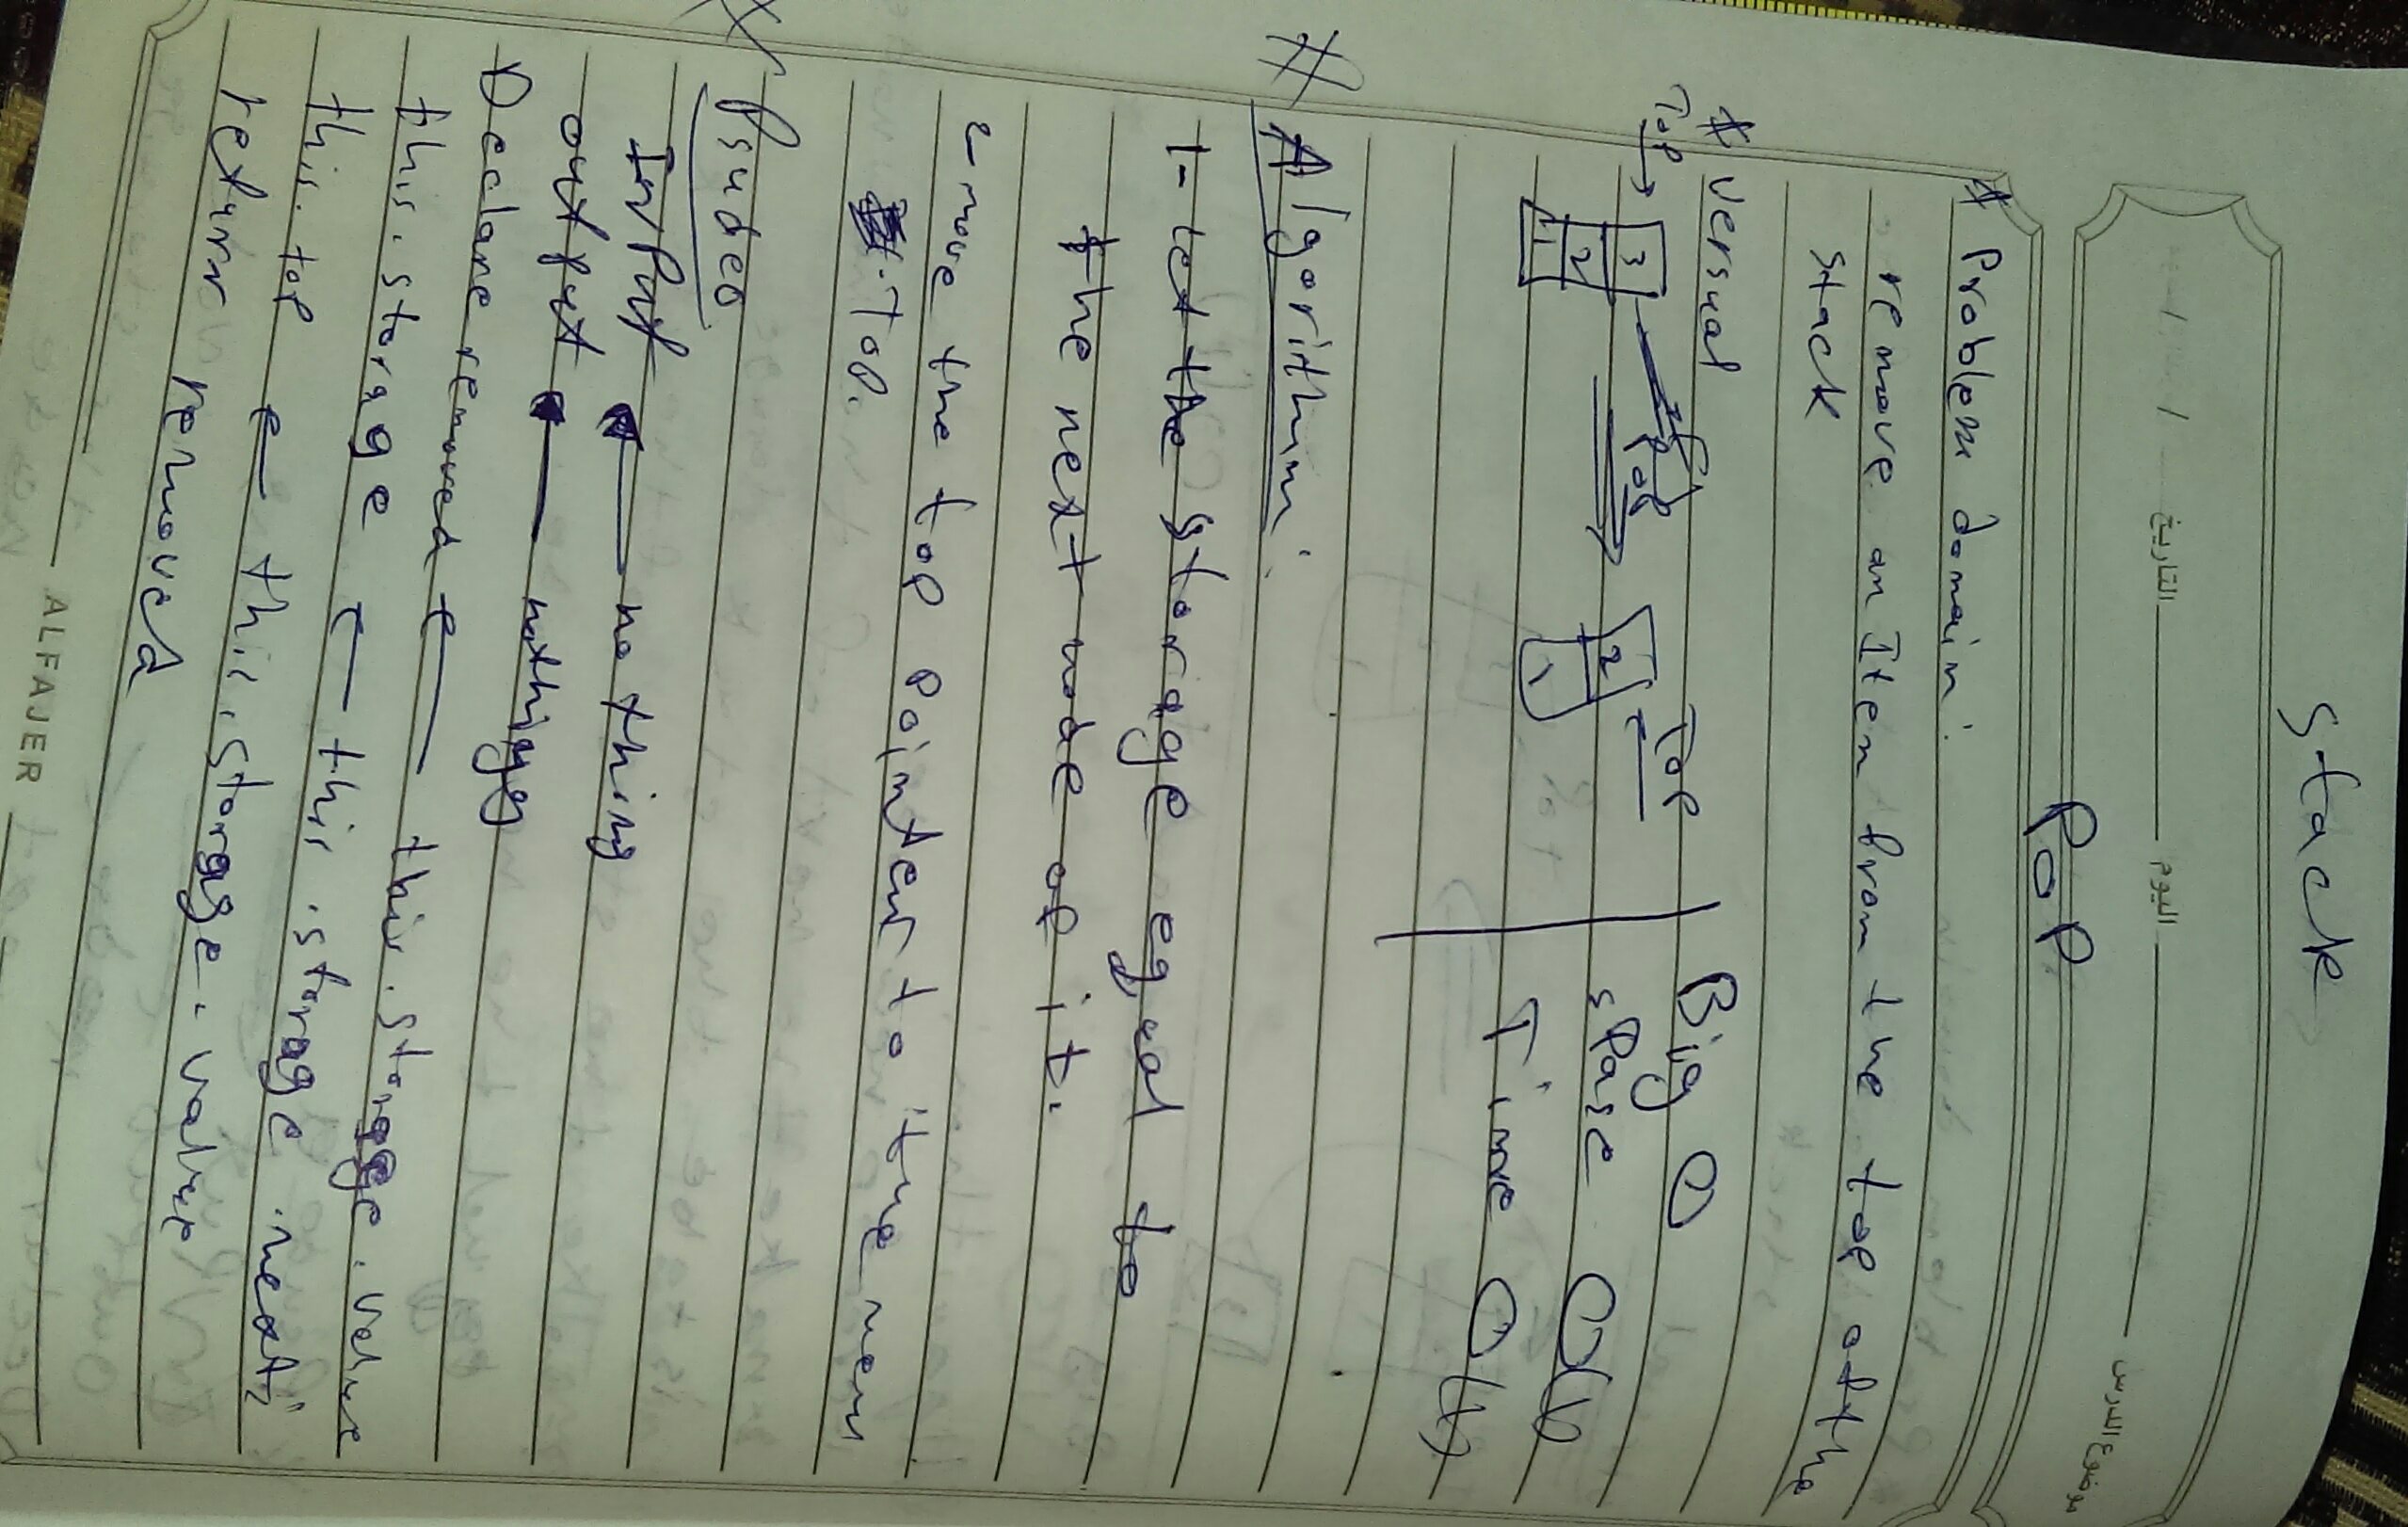 Stack
موضوع الدرس اليوم التاريخ / /
PoP
# Problem domain:
remove an Item from the top of the
stack
# versual
Big O
Top → 3 Pop Top
2 2 spase O(1)
1 1 Time O(1)
# Algorithim:
1- let the storage equal to
the next node of it.
2- move the top pointer to the new
Top.
# Psudeo
InPut ← nothing
outPut ← nothing
Declare removed ← this.storage.value
this.storage ← this.storage.next;
this.top ← this.storage.value
return removed
ALFAJER